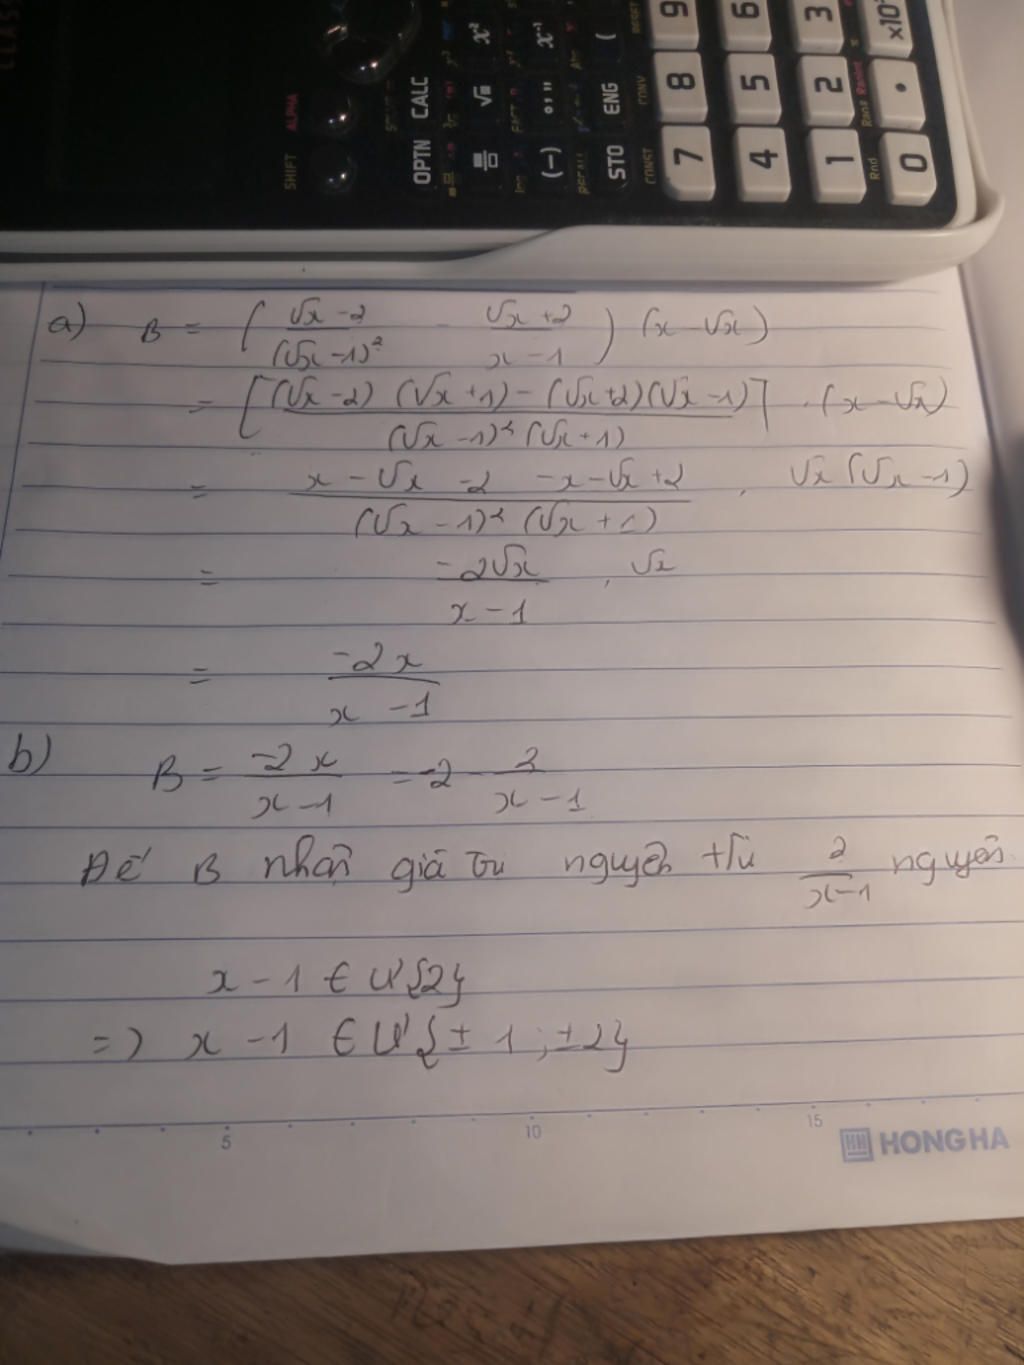 CLASS
SHIFT ALPHA
OPTN CALC
x² x⁻¹
√ (−) °'"
STO ENG (
CONST CONV RESET
7 8 9
4 5 6
1 2 3
Rnd Ran# RanInt
0 . ×10
a) B = ( (√x - 2)/(√x - 1)² - (√x + 2)/(x - 1) ) (x - √x)
= [ ((√x - 2) (√x + 1) - (√x + 2)(√x - 1))/((√x - 1)² (√x + 1)) ] . (x - √x)
= (x - √x - 2 - x - √x + 2)/((√x - 1)² (√x + 1)) . √x (√x - 1)
= (-2√x)/(x - 1) . √x
= (-2x)/(x - 1)
b) B = (-2x)/(x - 1) = -2 - 2/(x - 1)
Để B nhận giá trị nguyên thì 2/(x-1) nguyên
x - 1 ∈ Ư{2}
=> x - 1 ∈ Ư{± 1 ; ±2}
5 10 15
HH HONG HA